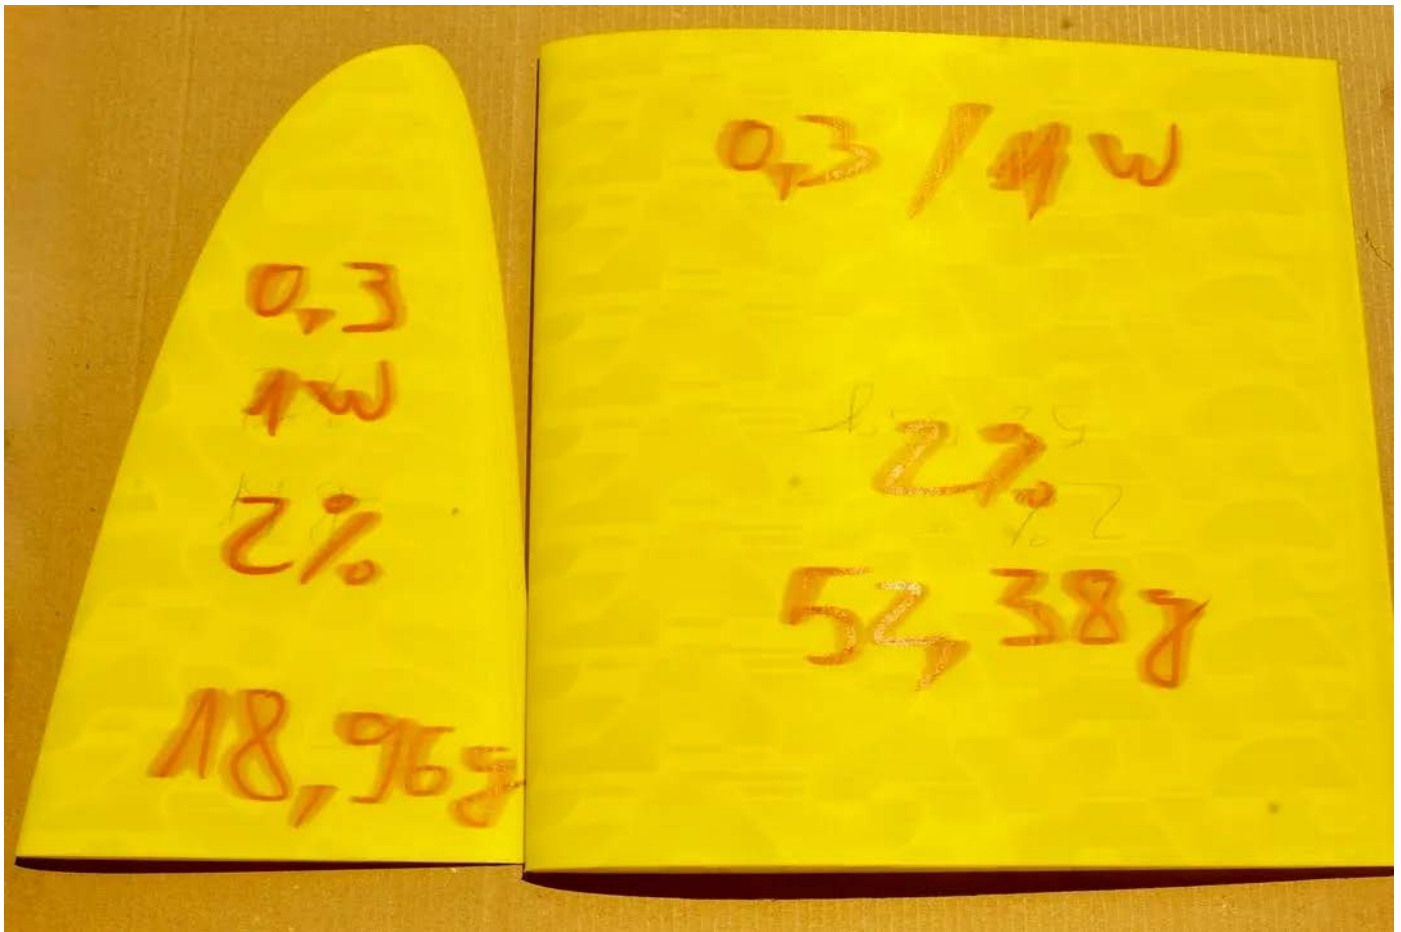 0,3
1w
2%
18,96g
0,3 / 1w
2%
52,38g